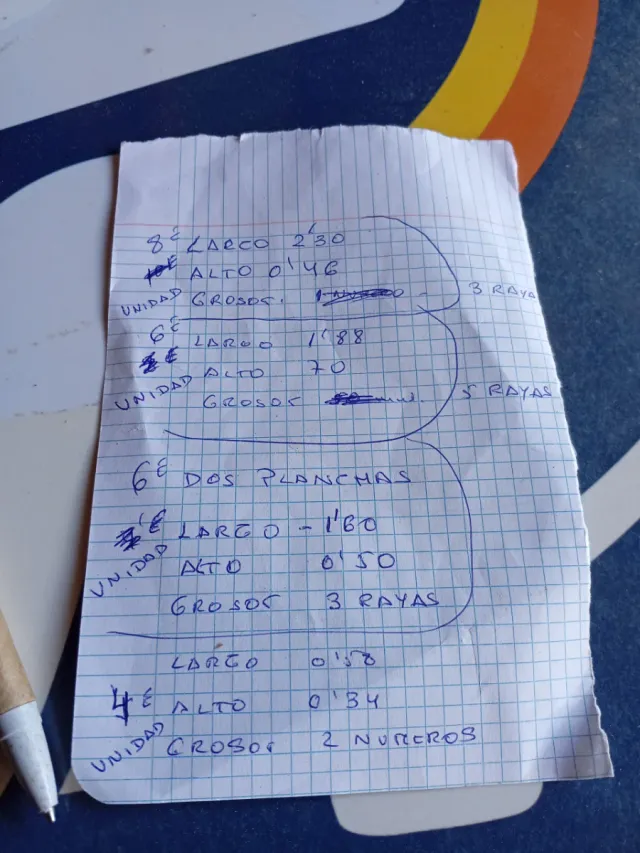 8€ LARGO 2'30
ALTO 0'46
UNIDAD GROSOR. - 3 RAYA
6€ LARGO 1'88
ALTO 70
UNIDAD GROSOR 5 RAYAS
6€ DOS PLANCHAS
LARGO - 1'60
UNIDAD ALTO 0'50
GROSOR 3 RAYAS
LARGO 0'58
4€ ALTO 0'34
UNIDAD GROSOR 2 NUMEROS